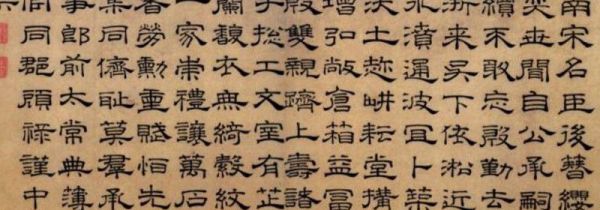 南宋名臣後簪纓
奕世聞自公承嗣
續不敢忘殷勤去
浙来吳下依淞近
水濆通波宜卜築
土趂畊耘堂搆
增弘敞倉箱益冨
殷雙親躋上壽諸
子揔工文室有芷
蘭馥衣無綺縠紋
一家崇禮讓萬石
香勞勳重賦恒先
集同儕恥莫羣承
事郎前太常典簿
同郡顧祿謹中